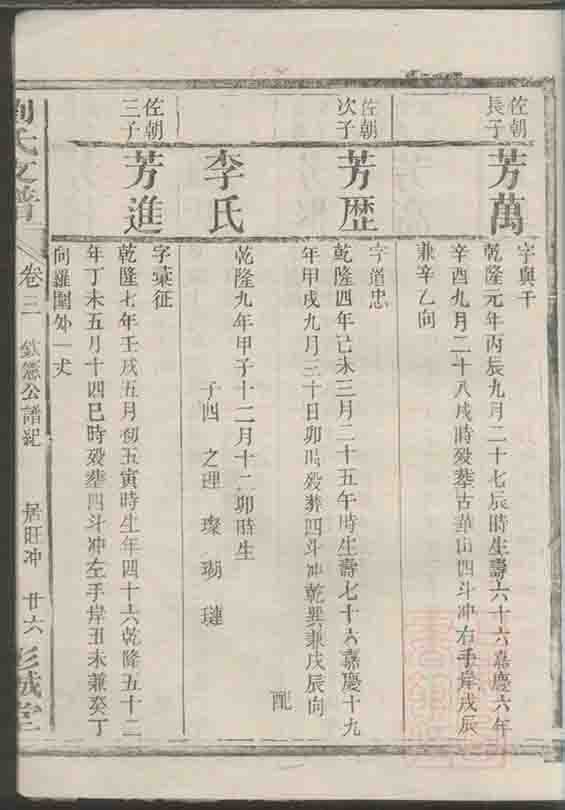 佐朝長子
芳萬
字與千
乾隆元年丙辰九月二十七辰時生壽六十六嘉慶六年
辛酉九月二十八戌時歿葬古華山四斗冲右手岸戌辰
兼辛乙向
佐朝次子
芳歴
字道忠
乾隆四年己未三月二十五午時生壽七十六嘉慶十九
年甲戌九月三十日卯時歿葬四斗冲乾巽兼戌辰向
配
李氏
乾隆九年甲子十二月十二卯時生
子四 之理 璨 瑒 璉
佐朝三子
芳進
字彙征
乾隆七年壬戌五月初五寅時生年四十六乾隆五十二
年丁未五月十四巳時歿葬四斗冲左手岸丑未兼癸丁
向羅圍外一丈
劉氏支譜
卷三
欽憲公譜紀
居旺冲
廿六
彭城堂